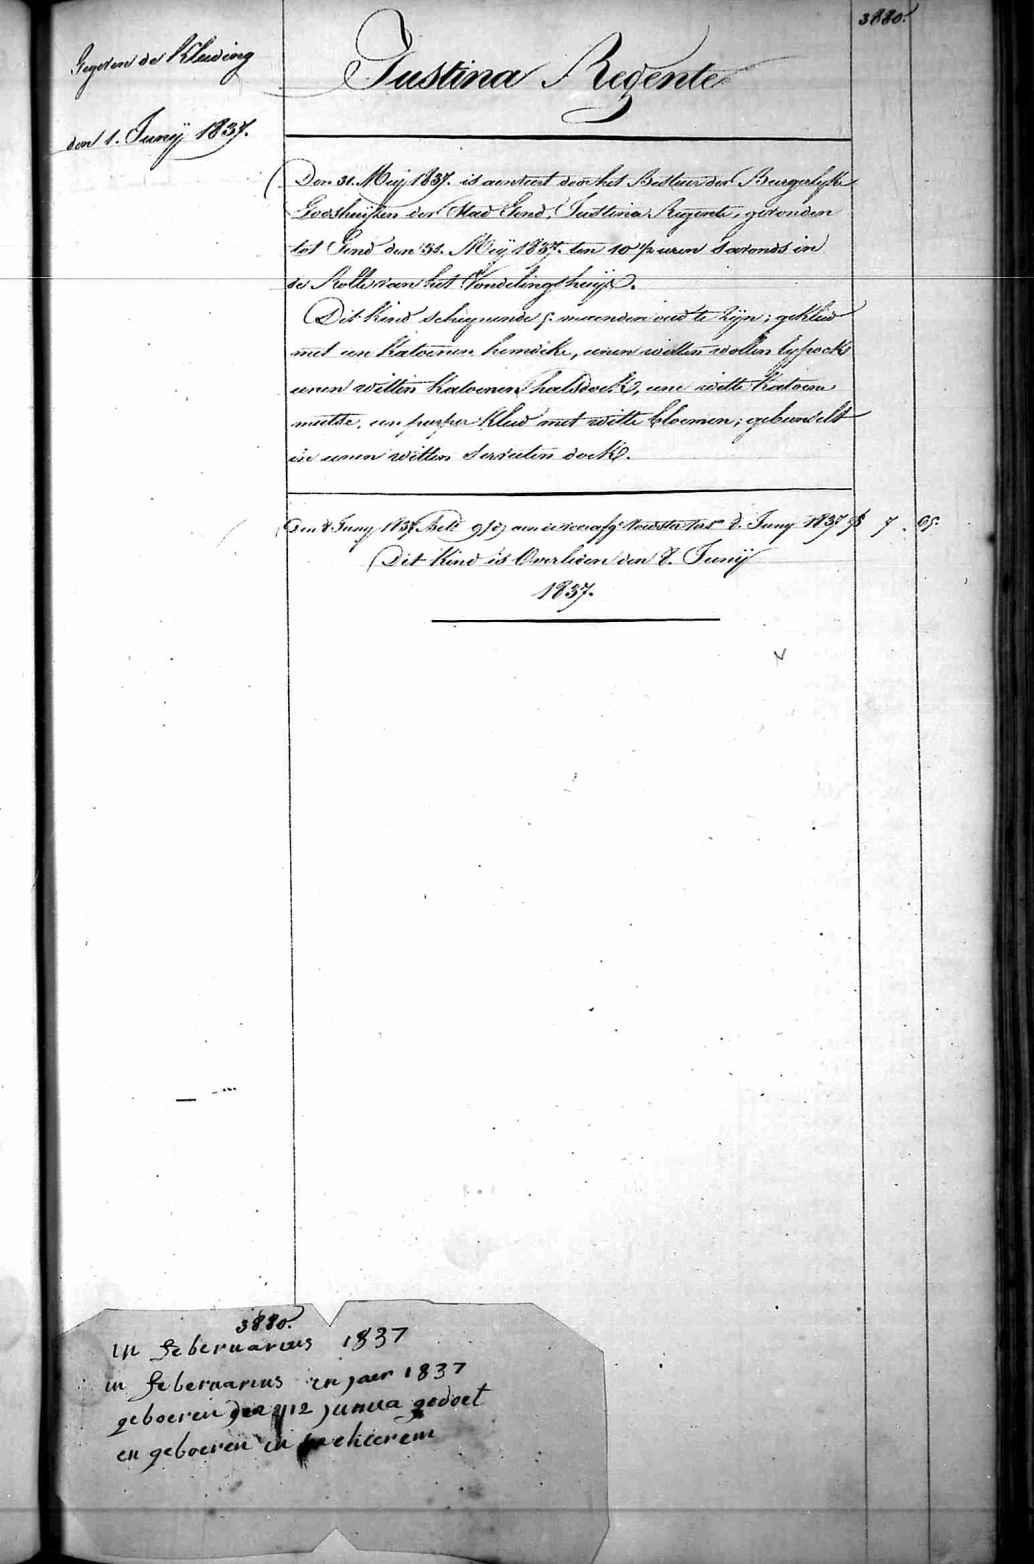 3880.
Gegeven de Kleeding
den 1. Junij 1837.
Justina Regente
Den 31. Meij 1837. is aenveert door het Bestuer der Burgerlyke
Godshuijsen der Stad Gend, Justina Regente, gevonden
tot Gend den 31. Meij 1837. ten 10 1/2 uren savonds in
de Rolle van het Vondelingshuijs.
Dit Kind schynende 5 maenden oud te zijn; gekleed
met een Katoenen hemdeke, eenen witten wollen lyfrock
eenen witten Katoenen halsdoek, eene witte Katoene
mutse, een purper Kleed met witte bloemen; gebundelt
in eenen witten servieten doek.
Den 8 Juny 1837. 8 Juny 1837 7. 05.
Dit Kind is Overleden den 8. Junij
1837.
3880.
in febernarius 1837
in febernarius in jaer 1837
geboeren den 12 janua gedoet
en geboeren in